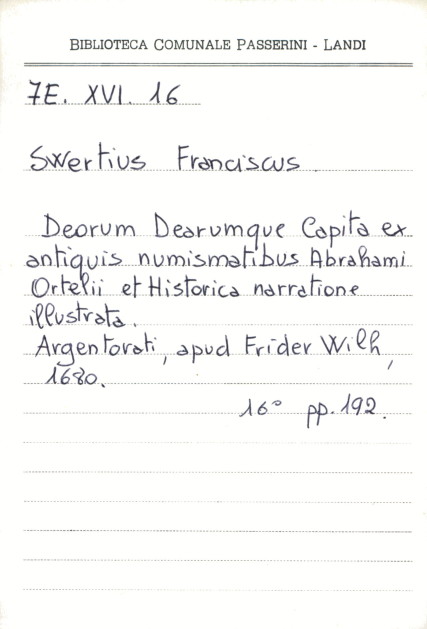 BIBLIOTECA COMUNALE PASSERINI - LANDI
7E. XVI. 16
Swertius Franciscus
Deorum Dearumque Capita ex
antiquis numismatibus Abrahami
Ortelii et Historica narratione
illustrata.
Argentorati, apud Frider Wilh,
1680.
16° pp. 192.